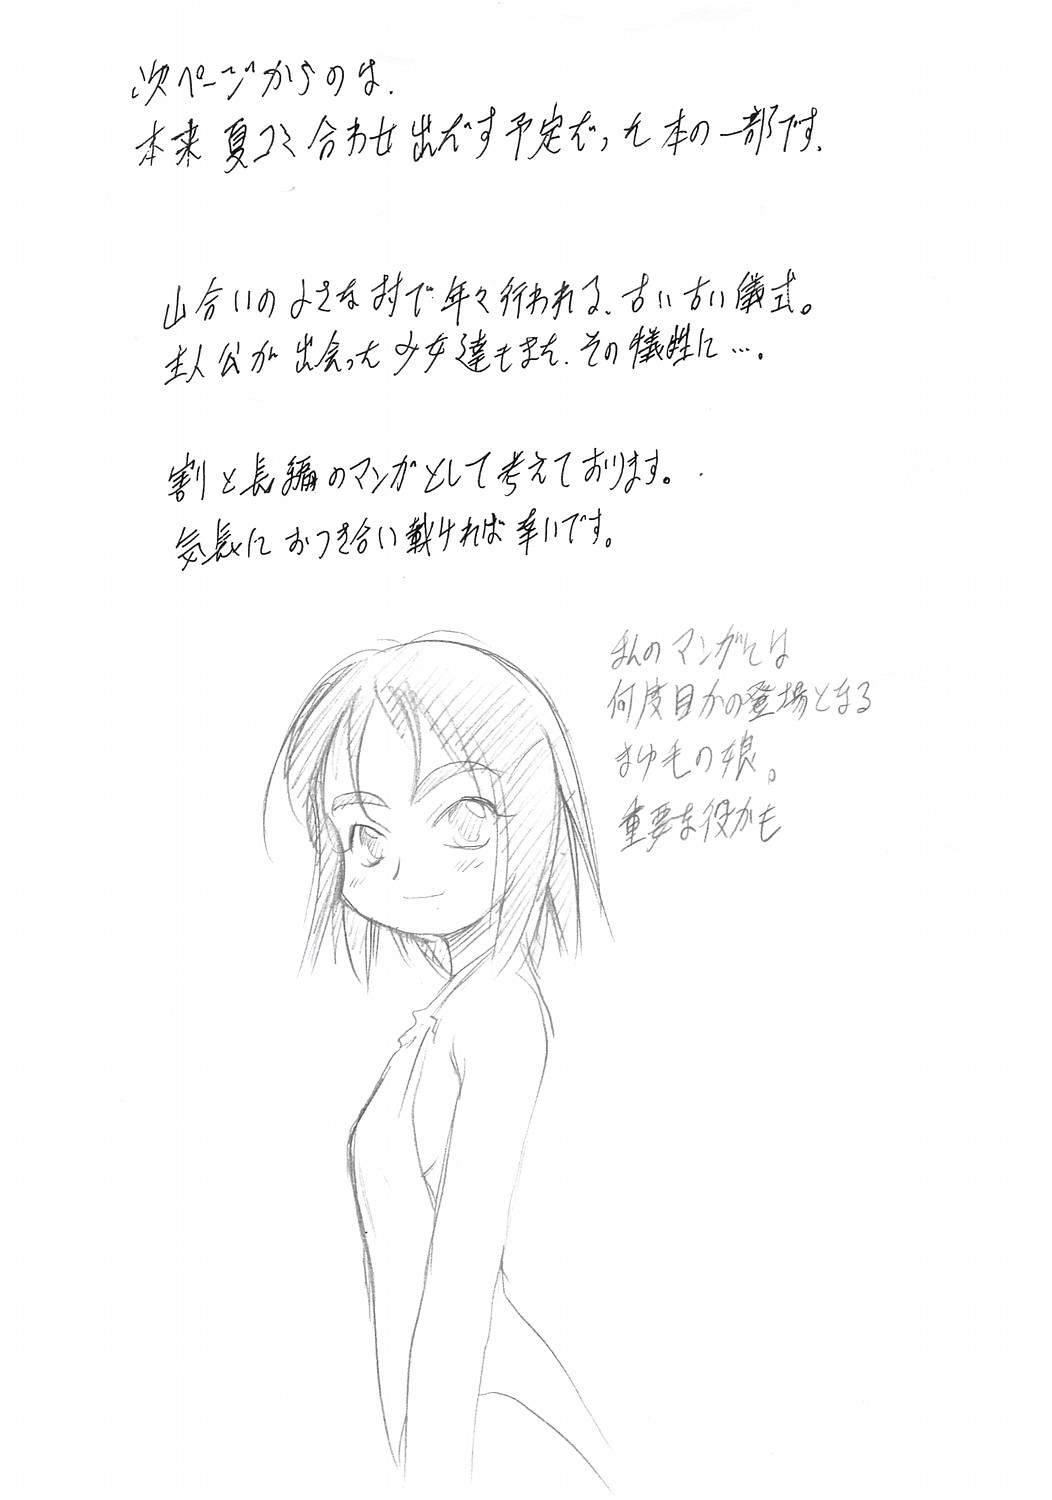 次ページからのは、
本来 夏コミ合わせ 出だす予定だった本の一部です。
山合いの小さな村で年々行われる、古い古い儀式。
主人公が出会った少女達もまた、その犠牲に…。
割と長編のマンガとして考えております。
気長におつき合い戴ければ幸いです。
のマンガでは
何度目かの登場となる
まゆ毛の娘。
重要な役かも